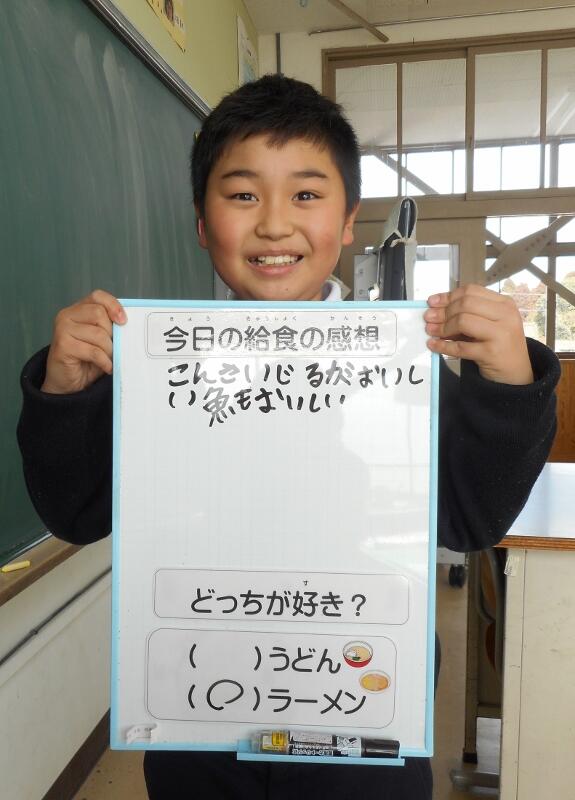 きょう きゅうしょく かんそう
今日の給食の感想
こんさいじるがおいし
い魚もおいしい
す
どっちが好き？
(　)うどん
(○)ラーメン